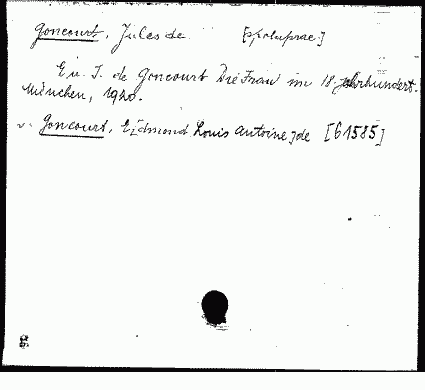 Goncourt, Jules de [spoluprac.]
E. u. J. de Goncourt Die Frau im 18. Jahrhundert.
München, 1920.
v. Goncourt, E[dmond Louis Antoine]de [61585]